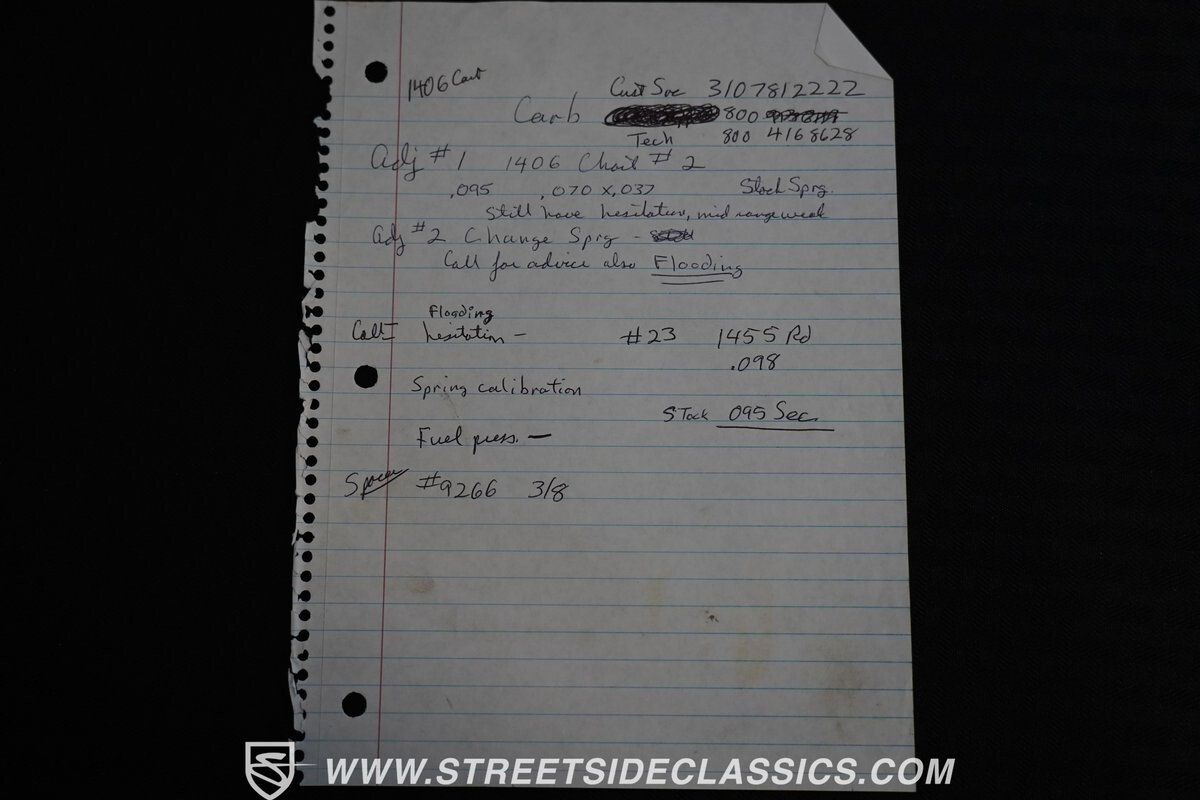 1406 Cart
Cust Svc 3107812222
Carb 800
Tech 800 4168628
Adj #1 1406 Chait # 2
.095 .070 x.037 Stock Sprg.
Still have hesitation, mid range weak
Adj #2 Change Sprg -
Call for advice also Flooding
Flooding
Call I hesitation - #23 1455 Rd
.098
Spring calibration
STock 095 Sec.
Fuel press. -
#9266 3/8
WWW.STREETSIDECLASSICS.COM